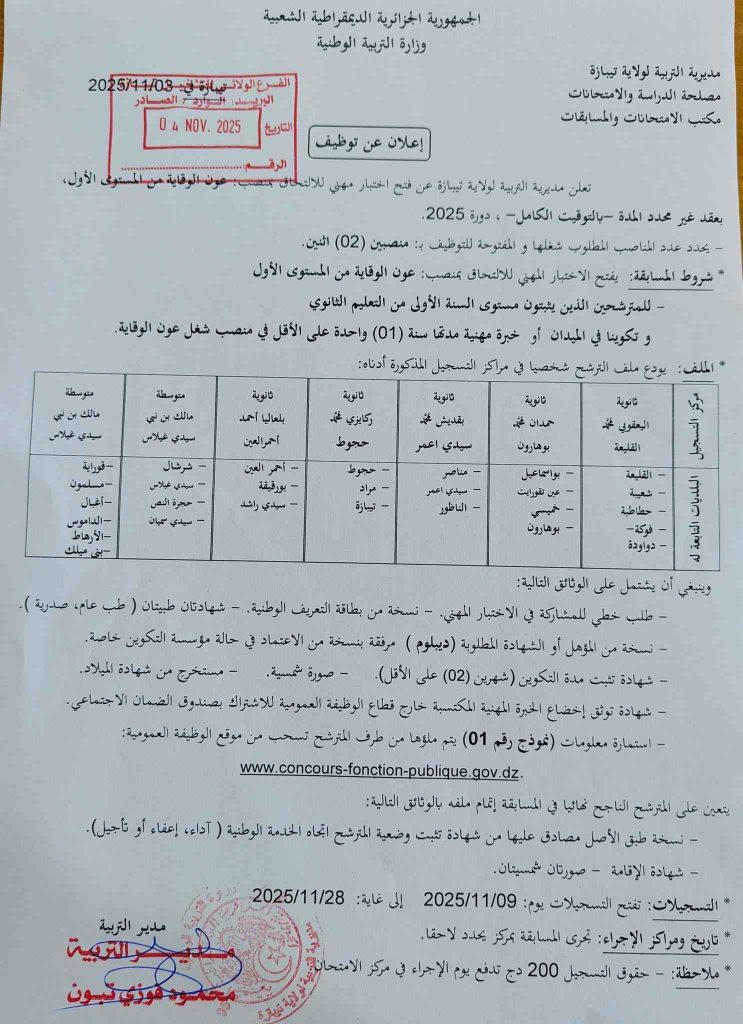 الجمهورية الجزائرية الديمقراطية الشعبية
وزارة التربية الوطنية
مديرية التربية لولاية تيبازة
مصلحة الدراسة والامتحانات
مكتب الامتحانات والمسابقات
تيبازة في: 2025/11/03
البريد: الوارد / الصادر
التاريخ 0 4 NOV. 2025
الرقم:
إعلان عن توظيف
تعلن مديرية التربية لولاية تيبازة عن فتح اختبار مهني للالتحاق بمنصب: عون الوقاية من المستوى الأول،
بعقد غير محدد المدة –بالتوقيت الكامل– ، دورة 2025.
– يحدد عدد المناصب المطلوب شغلها و المفتوحة للتوظيف بـ: منصبين (02) اثنين.
* شروط المسابقة: يفتح الاختبار المهني للالتحاق بمنصب: عون الوقاية من المستوى الأول
– للمترشحين الذين يثبتون مستوى السنة الأولى من التعليم الثانوي
و تكوينا في الميدان أو خبرة مهنية مدتها سنة (01) واحدة على الأقل في منصب شغل عون الوقاية.
* الملف: يودع ملف الترشح شخصيا في مراكز التسجيل المذكورة أدناه:
مركز التسجيل
ثانوية اليعقوبي محمد القليعة
ثانوية حمدان محمد بوهارون
ثانوية بقديش محمد سيدي اعمر
ثانوية ركايزي محمد حجوط
ثانوية بلعاليا أحمد أحمرالعين
متوسطة مالك بن نبي سيدي غيلاس
متوسطة مالك بن نبي سيدي غيلاس
البلديات التابعة له
– القليعة
– شعيبة
– حطاطبة
– فوكة–
– دواودة
– بواسماعيل
– عين تقورايت
– خميسي
– بوهارون
– مناصر
– سيدي اعمر
– الناظور
– حجوط
– مراد
– تيبازة
– أحمر العين
– بورقيقة
– سيدي راشد
– شرشال
– سيدي غيلاس
– حجرة النص
– سيدي سميان
–قوراية
–مسلمون
–أغبال
–الداموس
–الأرهاط
–بني ميلك
وينبغي أن يشتمل على الوثائق التالية:
– طلب خطي للمشاركة في الاختبار المهني. – نسخة من بطاقة التعريف الوطنية. – شهادتان طبيتان ( طب عام، صدرية ).
– نسخة من المؤهل أو الشهادة المطلوبة (ديبلوم ) مرفقة بنسخة من الاعتماد في حالة مؤسسة التكوين خاصة.
– شهادة تثبت مدة التكوين (شهرين (02) على الأقل). – صورة شمسية. – مستخرج من شهادة الميلاد.
– شهادة توثق إخضاع الخبرة المهنية المكتسبة خارج قطاع الوظيفة العمومية للاشتراك بصندوق الضمان الاجتماعي.
– استمارة معلومات (نموذج رقم 01) يتم ملؤها من طرف المترشح تسحب من موقع الوظيفة العمومية:
www.concours-fonction-publique.gov.dz.
يتعين على المترشح الناجح نهائيا في المسابقة إتمام ملفه بالوثائق التالية:
– نسخة طبق الأصل مصادق عليها من شهادة تثبت وضعية المترشح اتجاه الخدمة الوطنية ( آداء، إعفاء أو تأجيل).
– شهادة الإقامة – صورتان شمسيتان.
* التسجيلات: تفتح التسجيلات يوم: 2025/11/09 إلى غاية: 2025/11/28
* تاريخ ومراكز الإجراء: تجرى المسابقة بمركز يحدد لاحقا.
* ملاحظة: – حقوق التسجيل 200 دج تدفع يوم الإجراء في مركز الامتحان.
مدير التربية
مدير التربية
محمود فوزي تبون